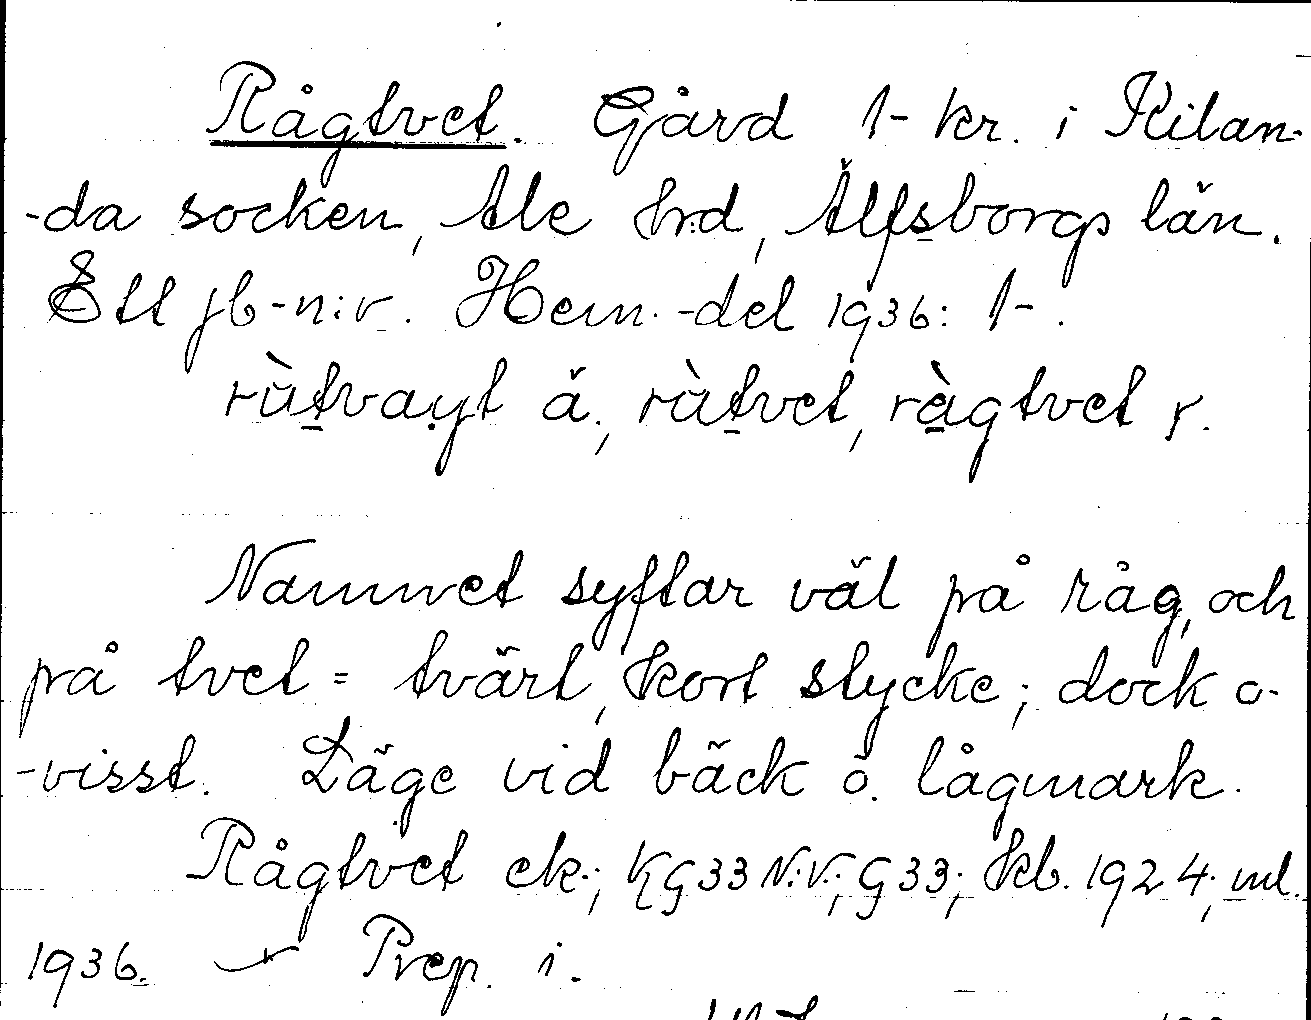 Rågtvet. Gård 1- kr. i Kilan-
-da socken, Ale hrd, Älfsborgs län.
Ett jb-n:r. Hem.-del 1936: 1-.
rùtvayt ä., ràtvet, règtvet y.
Namnet syftar väl på råg, och
på tvet = tvärt, kort stycke; dock o-
-visst. Läge vid bäck o. lågmark.
Rågtvet ek.; KG33 N.V.; G33; kb. 1924; ml.
1936. Prep. i.